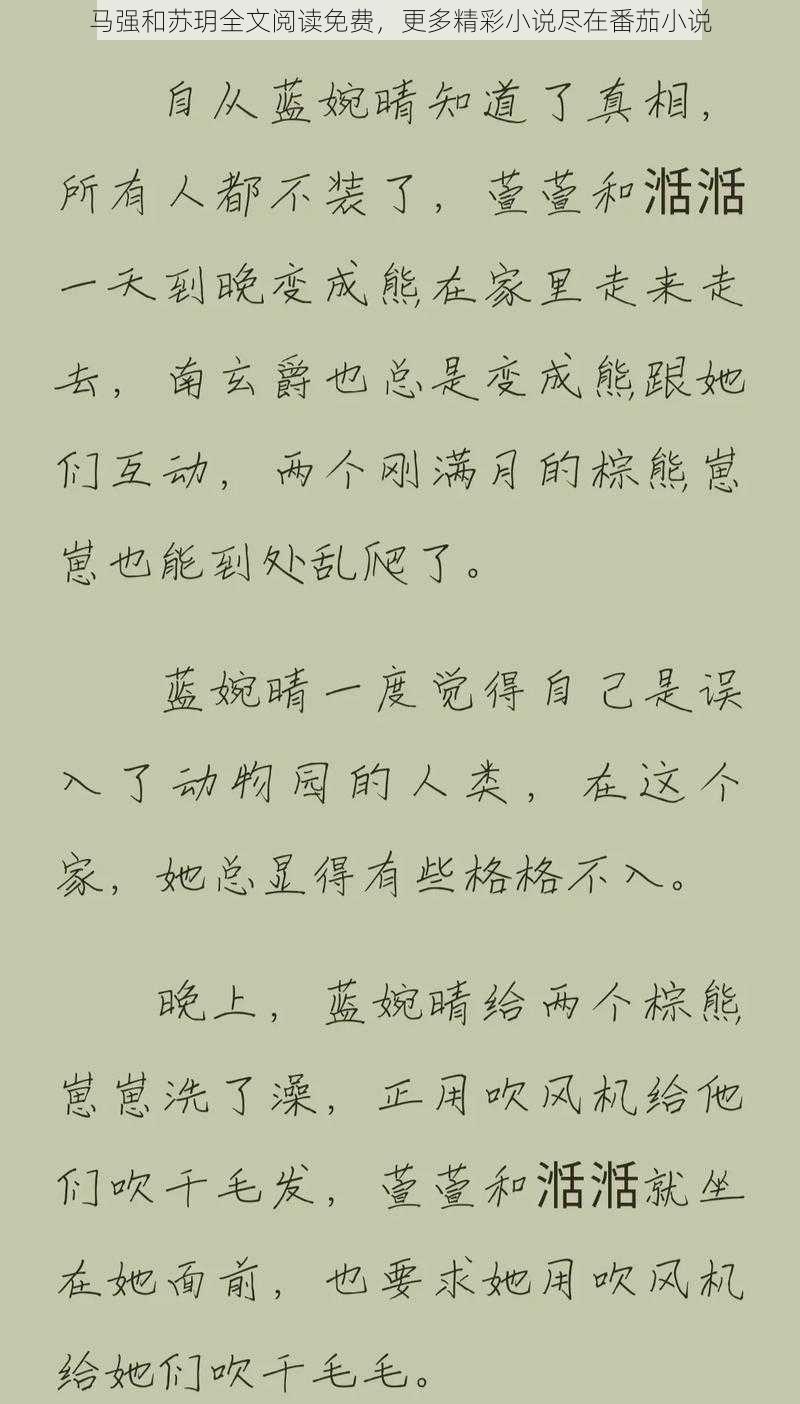 马强和苏玥全文阅读免费，更多精彩小说尽在番茄小说
自从蓝婉晴知道了真相，
所有人都不装了，萱萱和湉湉
一天到晚变成熊在家里走来走
去，南玄爵也总是变成熊跟她
们互动，两个刚满月的棕熊崽
崽也能到处乱爬了。
蓝婉晴一度觉得自己是误
入了动物园的人类，在这个
家，她总显得有些格格不入。
晚上，蓝婉晴给两个棕熊
崽崽洗了澡，正用吹风机给他
们吹干毛发，萱萱和湉湉就坐
在她面前，也要求她用吹风机
给她们吹干毛毛。